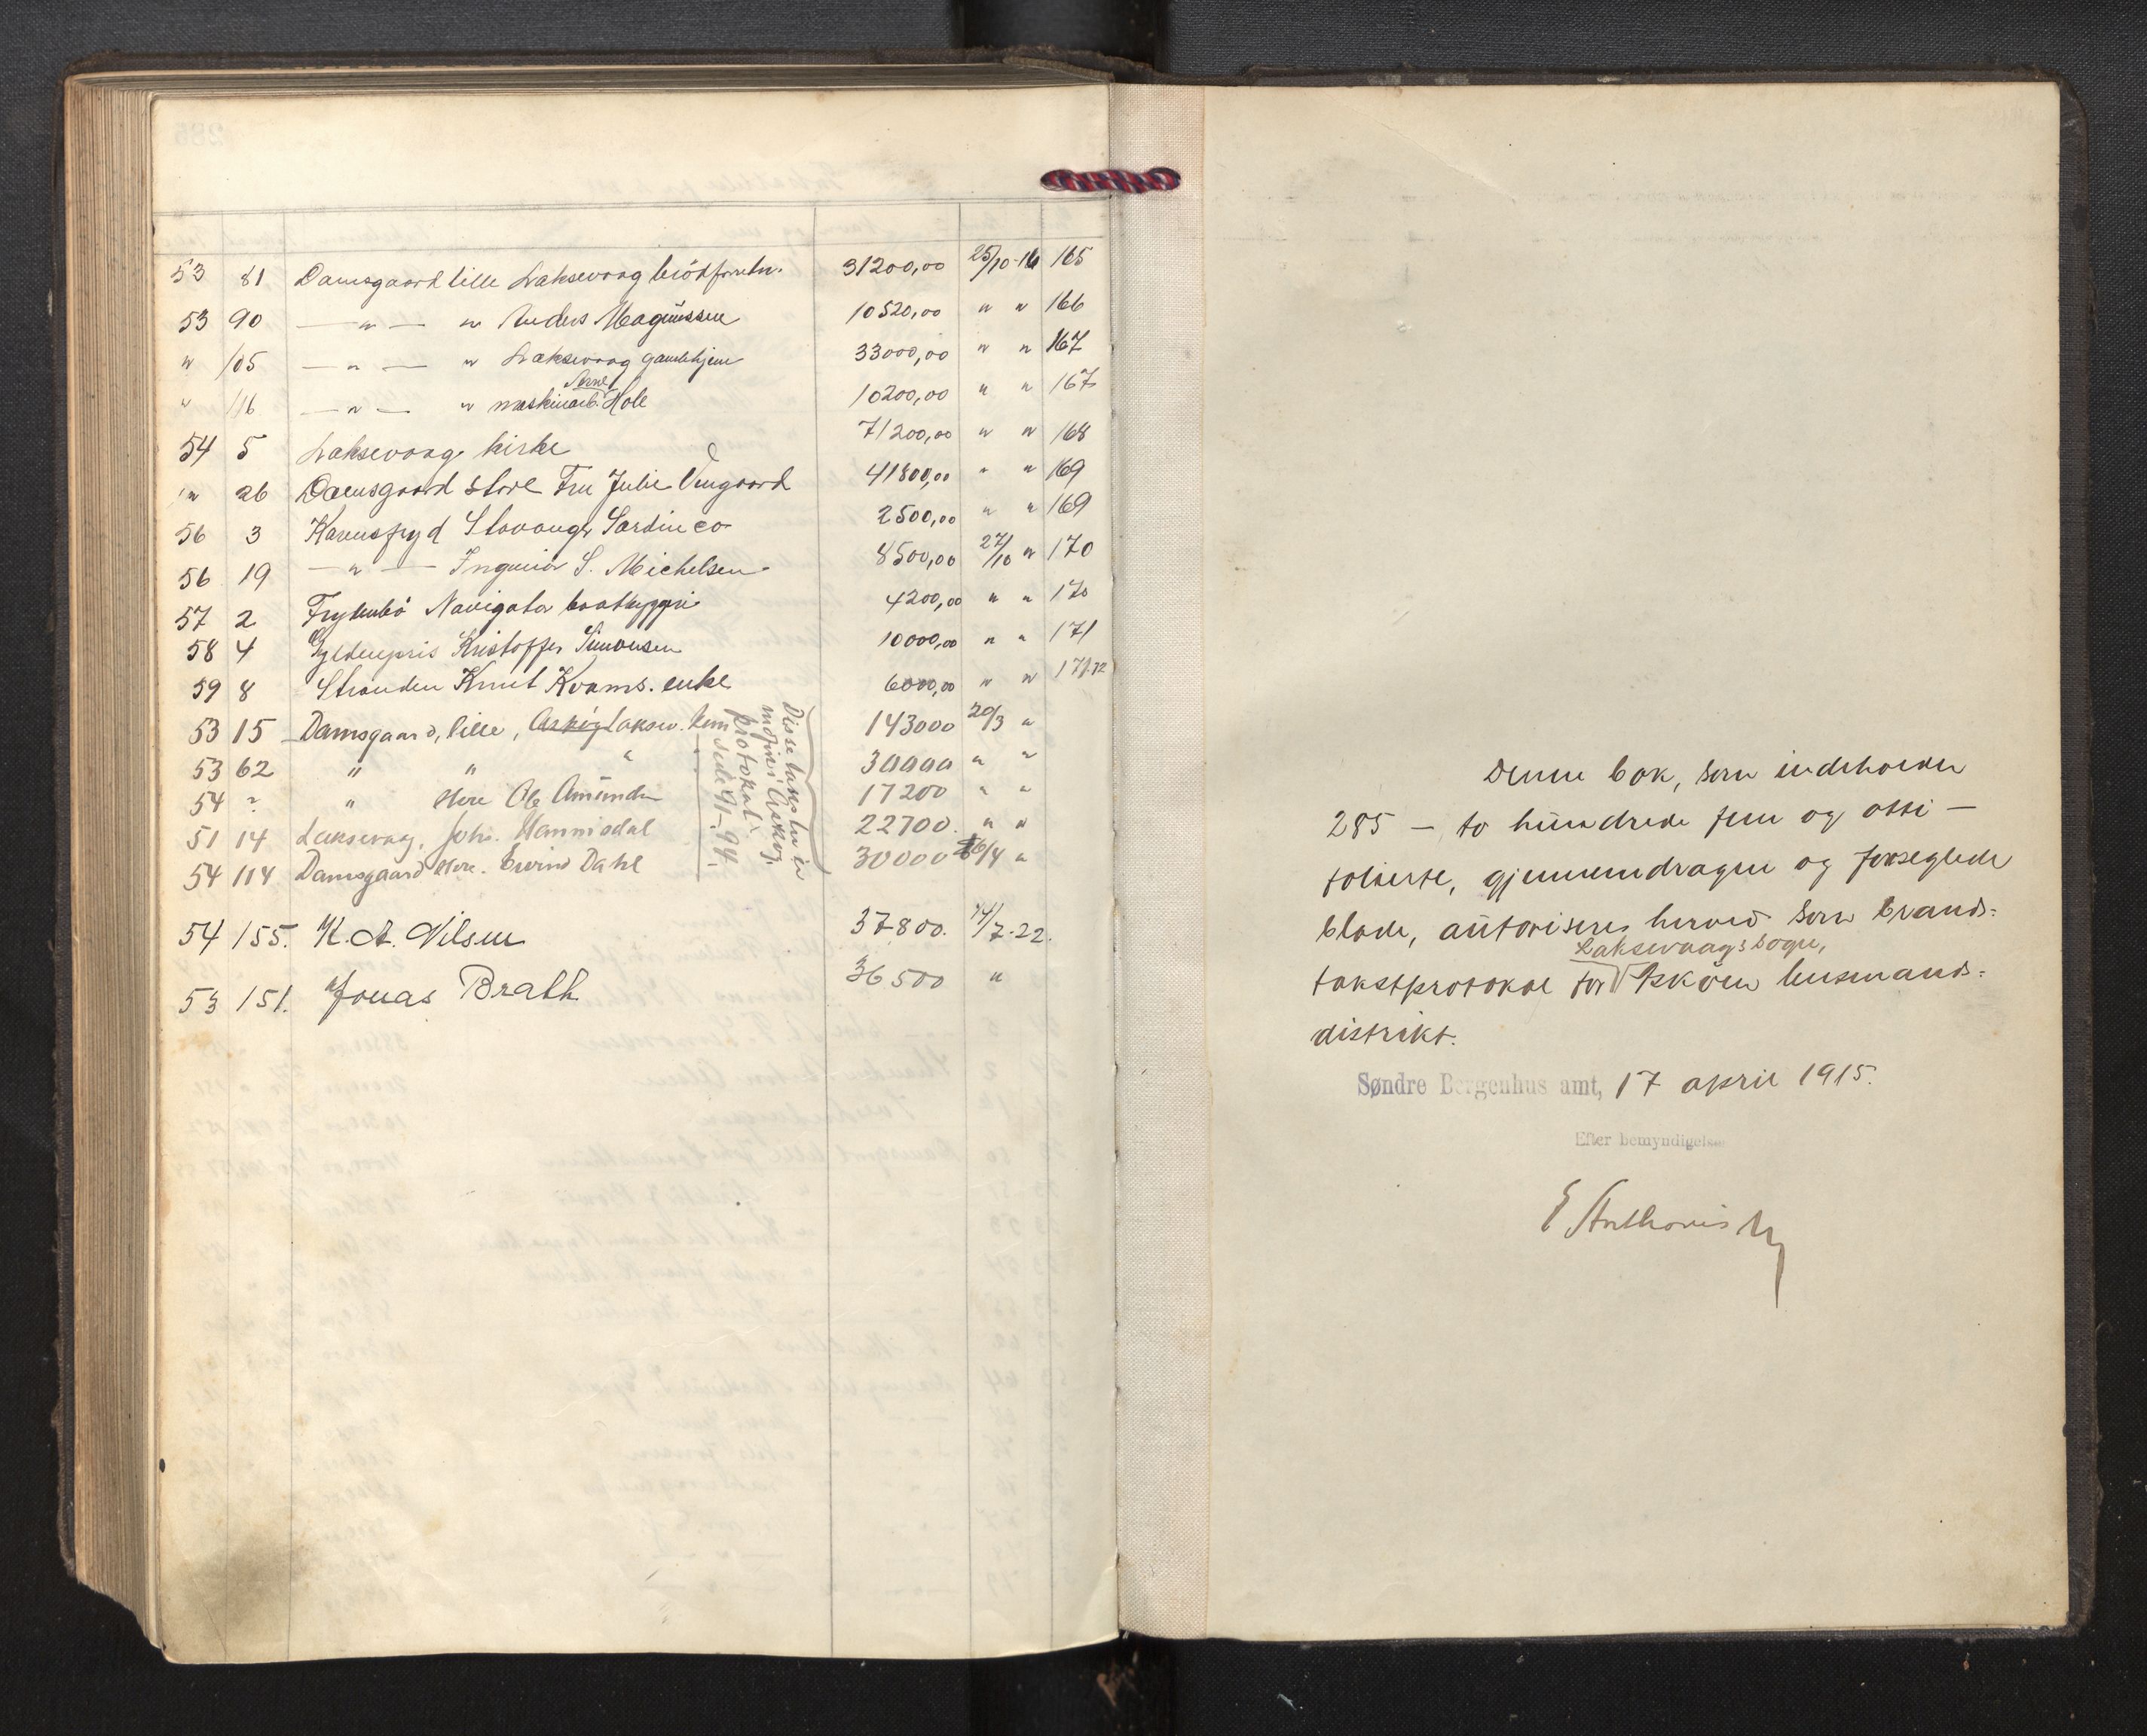 53 81 Damsgaard lille Laksevaag brödforretn. 31200,00 25/10-16 165
53 90 — " — " Anders Magnüssen 10520,00 " " 166
" 105 — " — " Laksevaag gamlehjem 33000,00 " " 167
" 116 — " — " maskinarb. Hole 10200,00 " " 167
54 5 Laksevaag kirke 71200,00 " " 168
" 26 Damsgaard store Fru Julie Vengaard 41800,00 " " 169
56 3 Kavensfryd Stavanger Sardin co 2500,00 " " 169
56 19 — " — Ingeniör S. Michelsen 8500,00 27/10 " 170
57 2 Frydenbö Navigator baatbyggri 4200,00 " " 170
58 4 Gyldenpris Kristoffer Simonsen 10000,00 " " 171
59 8 Stranden Knut Kvams. enke 6000,00 " " 171-72
53 15 Damsgaard, lille, Laksev. kom 143000 20/3 "
53 62 " " " 30000 " "
54 ? " store Ole Amundsen 17200 " "
51 14 Laksevag, Joh. Hannisdal 22700. " "
54 114 Damsgaard store. Eivind Dahl 30000 6/4 "
Disse takster er
indført i Askøy
protokol
side 91-94
54 155. K. A. Nilsen 37800. 14/7-22.
53 151. Jonas Brath 36500 "
Denne bok, som indeholder
285 — to hündrede fem og otti —
folierte, gjennemdragne og forseglede
blade, aütoriseres herved som brand-
Laksevaags sogn,
takstprotokol for Askøen lensmands-
distrikt.
Søndre Bergenhus amt, 17 april 1915.
Efter bemyndigelse